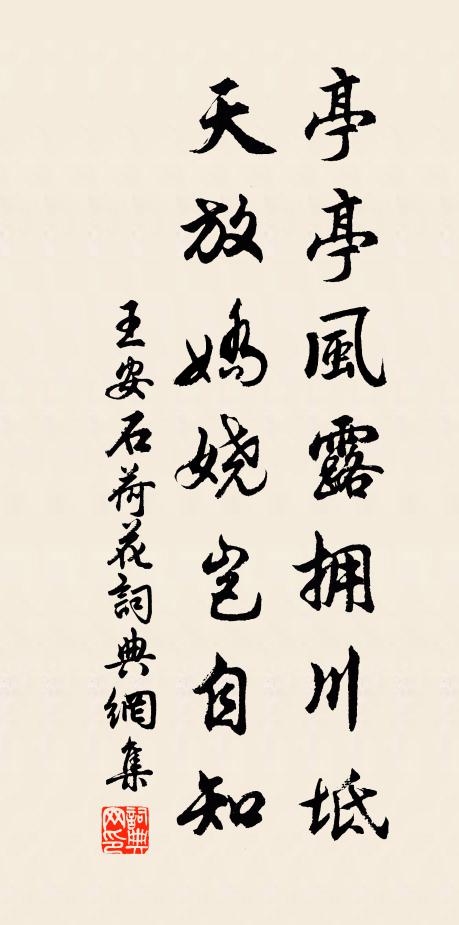 亭亭風露拥川坻
天放嬌嬈岂自知
王安石荷花詞典網集
詞典网印